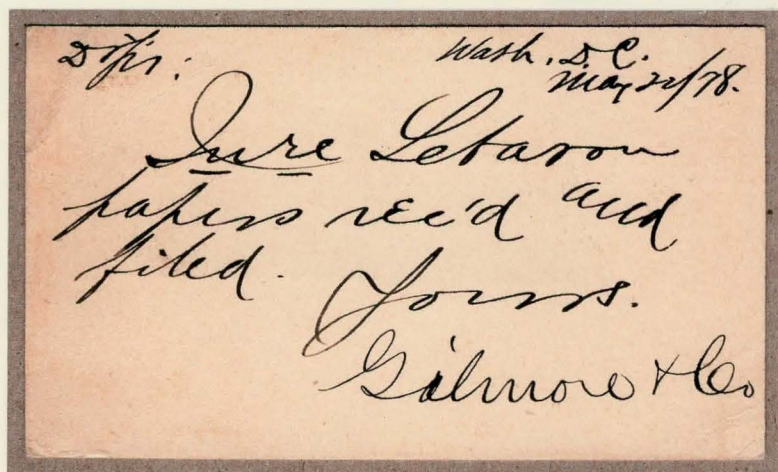 D Sir:
Wash, D.C.
May 22/78.
In re Lebaron
papers rec'd and
filed.
Yours.
Gilmore & Co